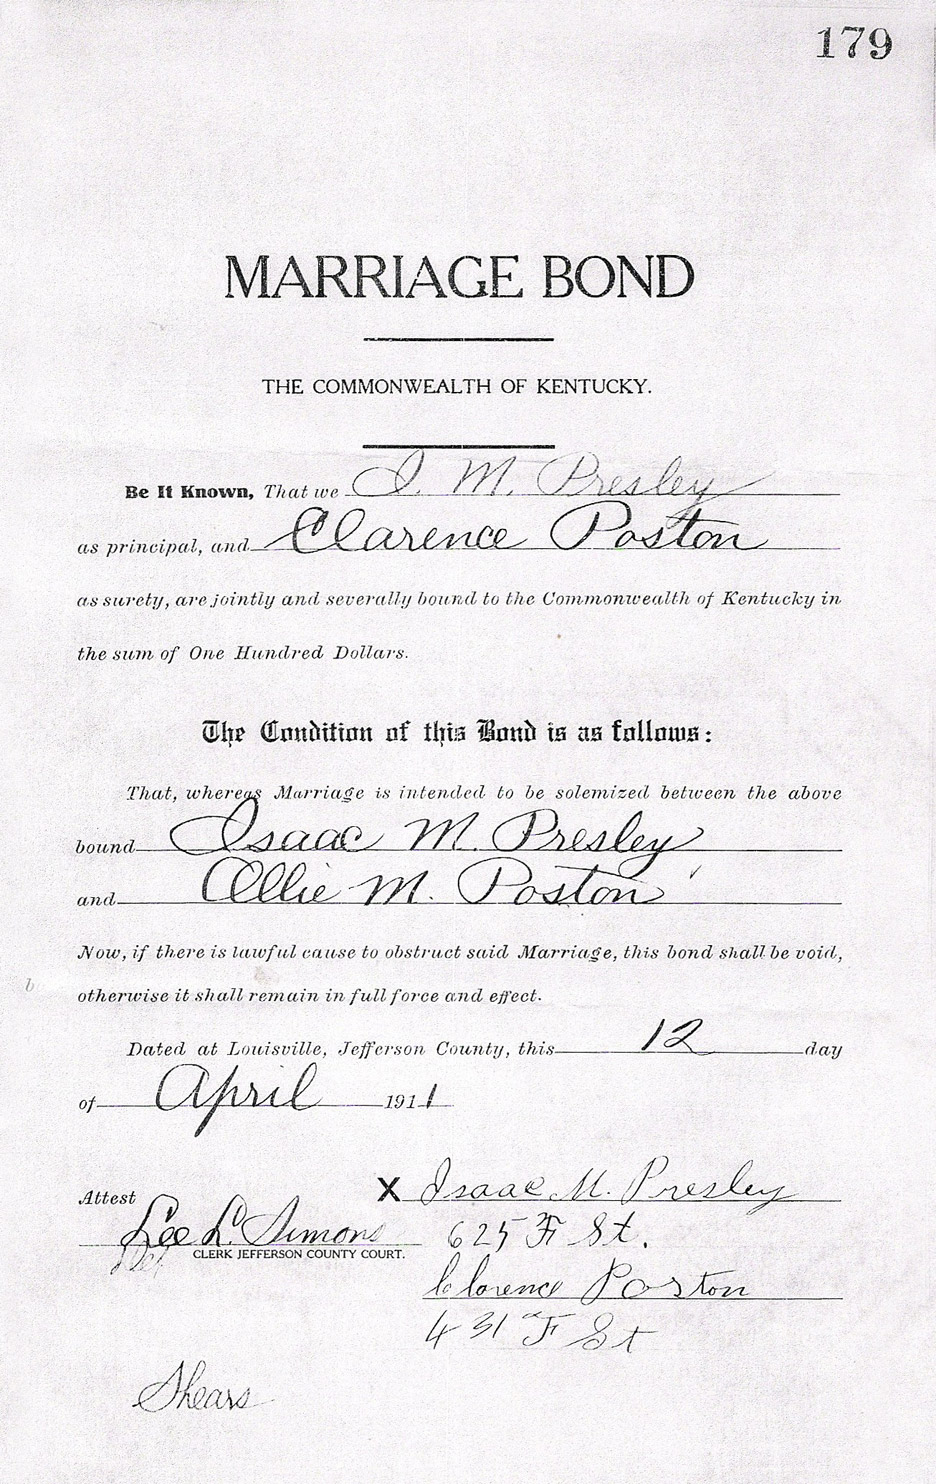 179
MARRIAGE BOND
THE COMMONWEALTH OF KENTUCKY.
Be It Known, That we I. M. Presley
as principal, and Clarence Poston
as surety, are jointly and severally bound to the Commonwealth of Kentucky in
the sum of One Hundred Dollars.
The Condition of this Bond is as follows:
That, whereas Marriage is intended to be solemized between the above
bound Isaac M. Presley
and Ollie M. Poston
Now, if there is lawful cause to obstruct said Marriage, this bond shall be void,
otherwise it shall remain in full force and effect.
Dated at Louisville, Jefferson County, this 12 day
of April 1911
Attest X Isaac M. Presley
Lee L. Simons 625 F St.
CLERK JEFFERSON COUNTY COURT.
Clarence Poston
431 F St
Shears